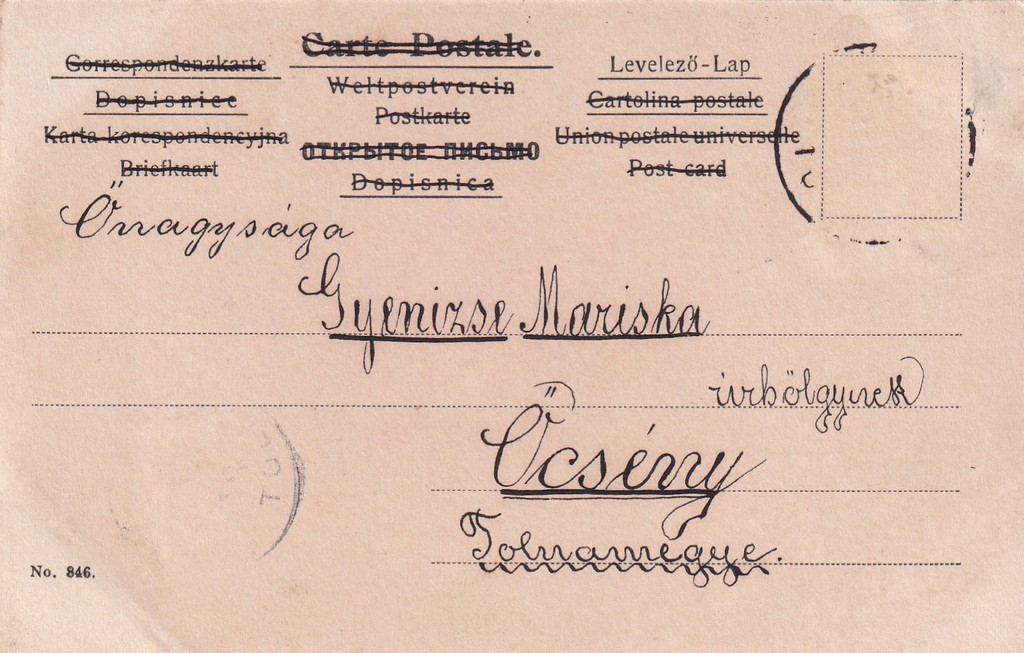 Carte Postale.
Correspondenzkarte
Weltpostverein
Levelező-Lap
Dopisnice
Postkarte
Cartolina postale
Karta korespondencyjna
ОТКРЫТОЕ ПИСЬМО
Union postale universelle
Briefkaart
Dopisnica
Post card
Őnagysága
Gyenizse Mariska
úrhölgynek
Őcsény
Tolnamegye.
No. 846.